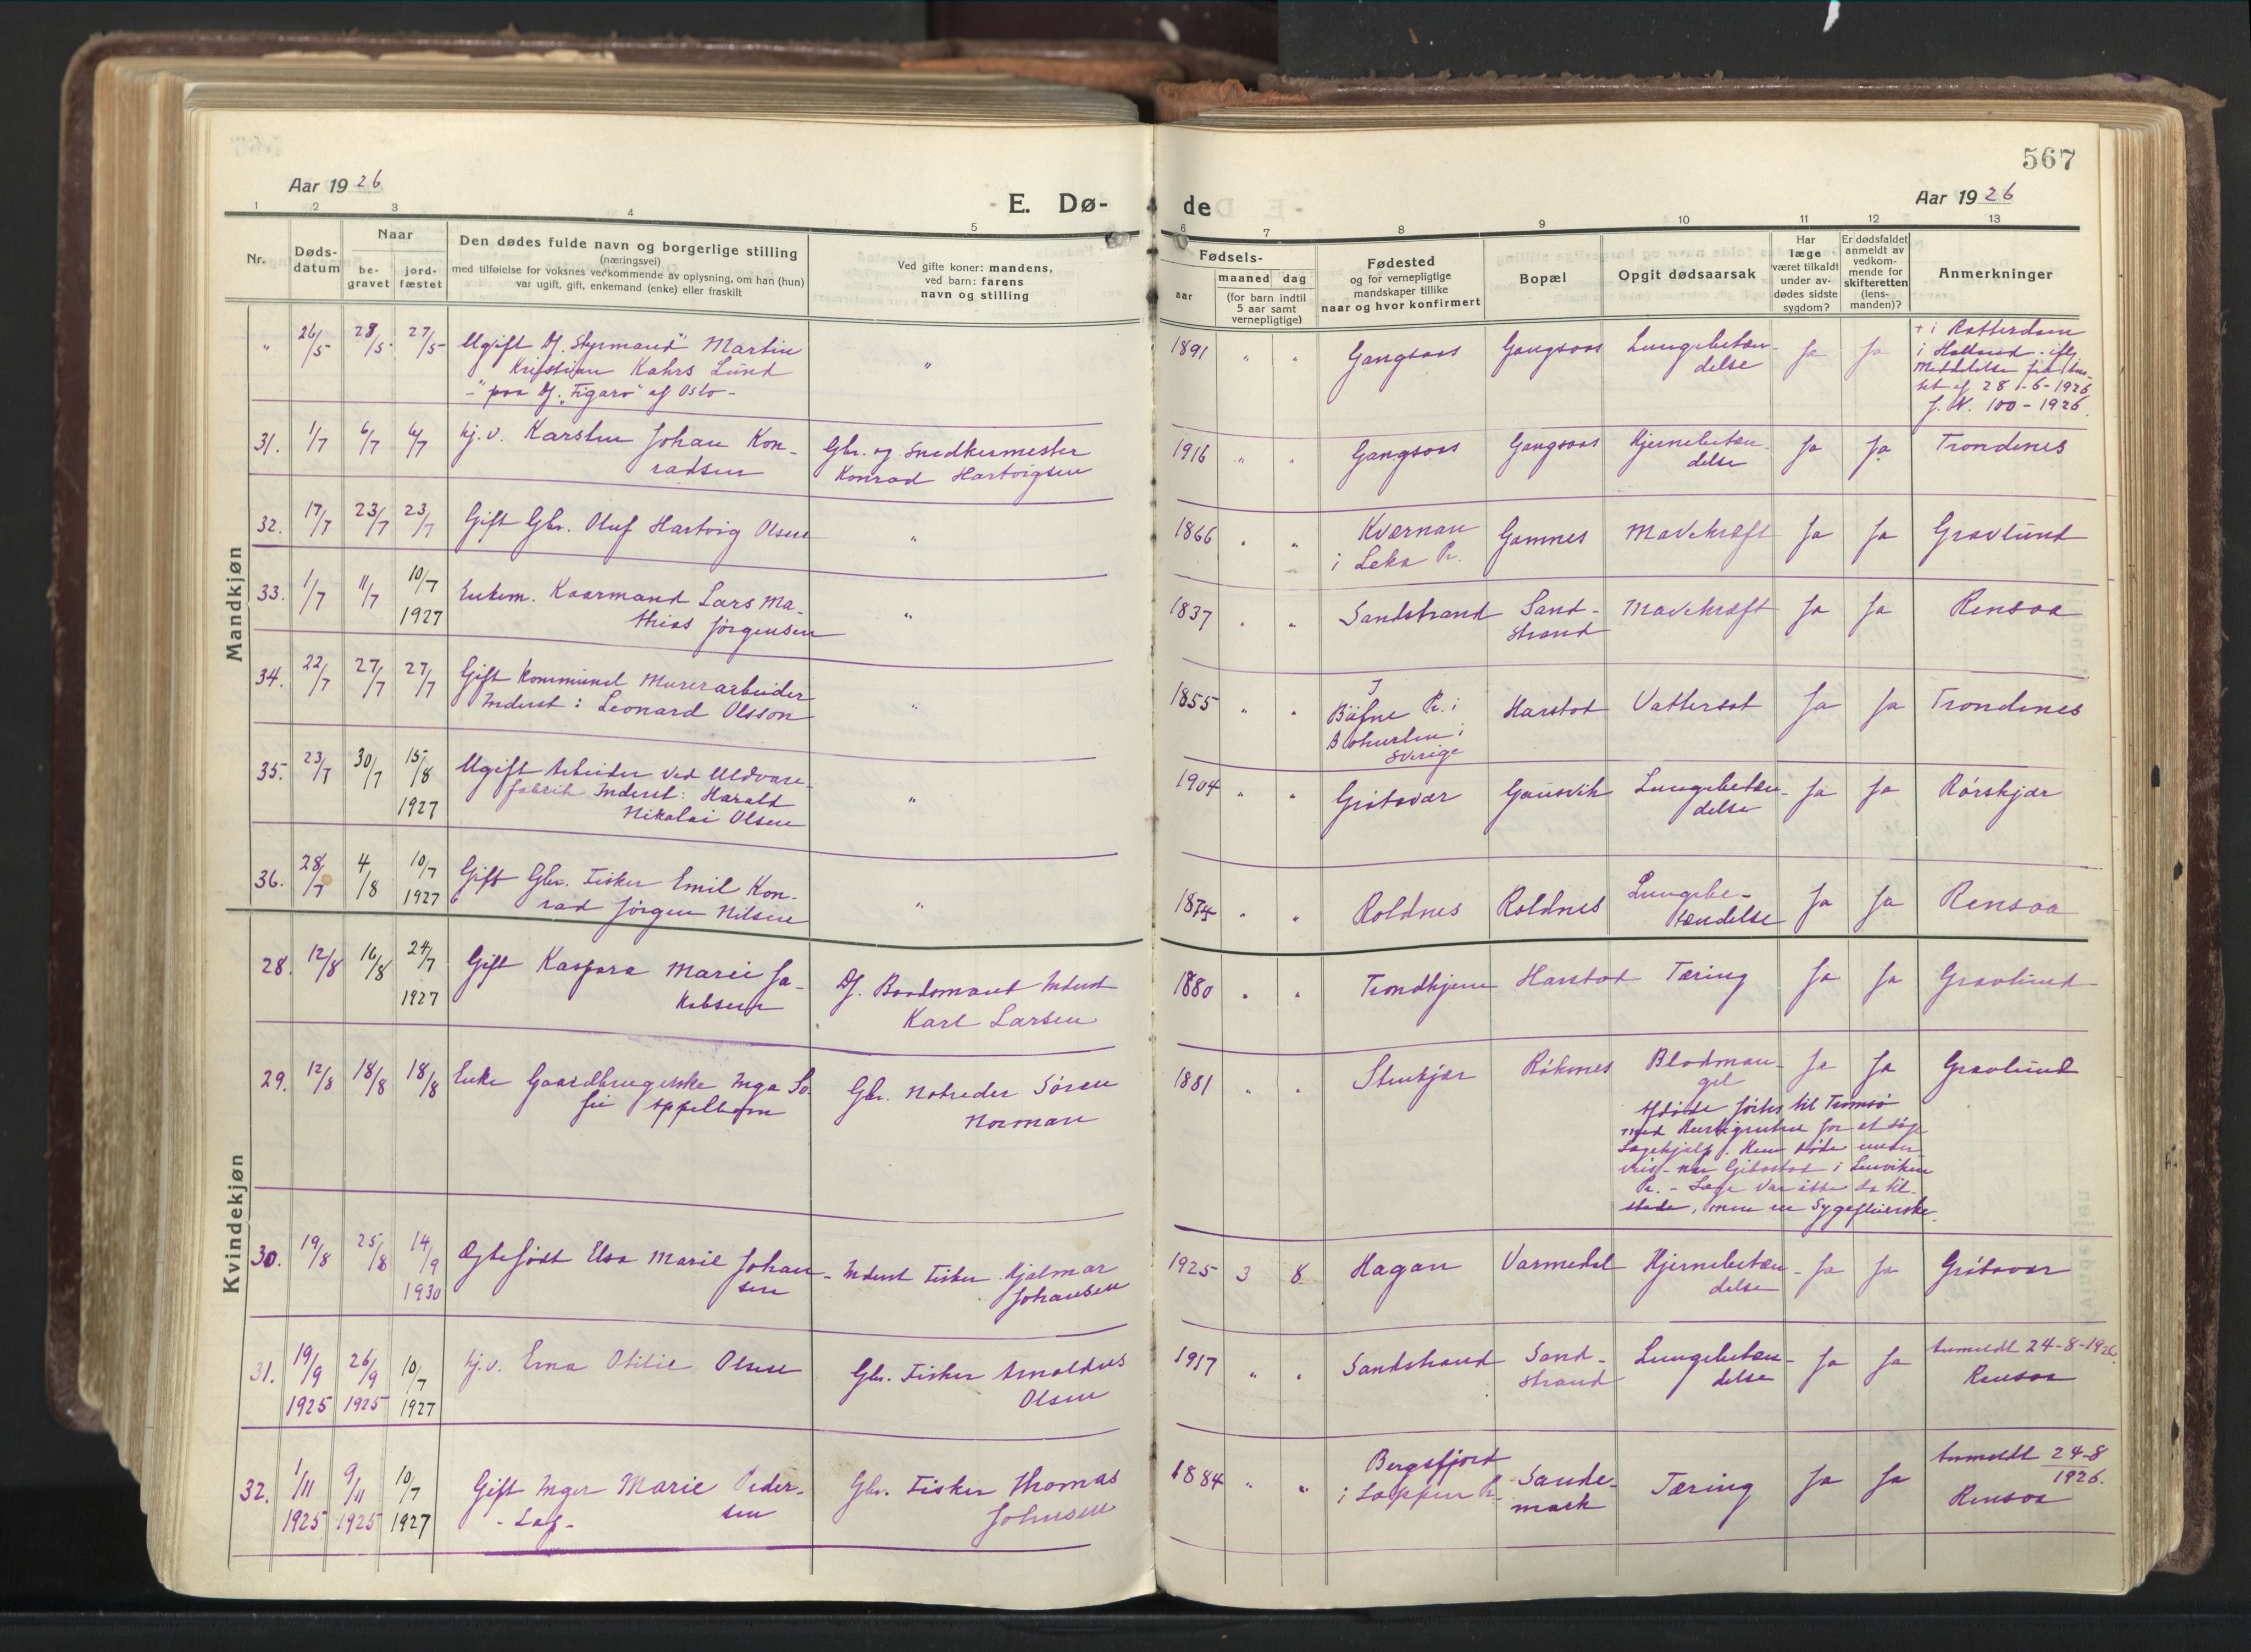 567
Aar 1926
Aar 1926
E. Dø-
de
1 2 3 4 5 6 7 8 9 10 11 12 13
Nr.
Døds-
datum
Naar
be-
gravet
jord-
fæstet
Den dødes fulde navn og borgerlige stilling
(næringsvei)
med tilføielse for voksnes vedkommende av oplysning, om han (hun)
var ugift, gift, enkemand (enke) eller fraskilt
Ved gifte koner: mandens,
ved barn: farens
navn og stilling
Fødsels-
aar
maaned dag
(for barn indtil
5 aar samt
vernepligtige)
Fødested
og for vernepligtige
mandskaper tillike
naar og hvor konfirmert
Bopæl
Opgit dødsaarsak
Har
læge
været tilkaldt
under av-
dødes sidste
sygdom?
Er dødsfaldet
anmeldt av
vedkom-
mende for
skifteretten
(lens-
manden)?
Anmerkninger
Mandkjøn
" 26/5 28/5 27/5 Ugift Styrmand Martin
Kristian Kahrs Lund
"paa "Figaro" af Oslo-
" 1891 " " Gangsaas Gangsaas Lungebetæn-
delse Ja Ja + i Rotterdam
i Holland
28-6-1926
J. N. 100-1926.
31. 1/7 6/7 6/7 hj. v. Karsten Johan Kon-
radsen
Gbr. og Snedkermester
Konrad Hartvigsen
1916 " " Gangsaas Gangsaas Hjernebetæn-
delse Ja Ja Trondenes
32. 17/7 23/7 23/7 Gift Gbr. Oluf Hartvig Olsen " 1866 " " Kværnan
i Leka Pr. Gamnes Mavekræft Ja Ja Gravlund
33. 1/7 11/7 10/7
1927 Enkem. Kaarmand Lars Ma-
thias Jørgensen " 1837 " " Sandstrand Sand-
strand Mavekræft Ja Ja Rensaa
34. 22/7 27/7 27/7 Gift Kommunel Murerarbeider
Inderst: Leonard Olsson " 1855 " " I
Bäfne Pr. i
Bohuslen i
Sverige Harstad Vattersot Ja Ja Trondenes
35. 23/7 30/7 15/8
1927 Ugift Arbeider ved Uldvare-
fabrik Inderst: Harald
Nikolai Olsen " 1904 " " Grøtavær Gausvik Lungebetæn-
delse Ja Ja Rørskjær
36. 28/7 4/8 10/7
1927 Gift Gbr. Fisker Emil Kon-
rad Jørgen Nilsen " 1874 " " Roldnes Roldnes Lungebe-
tændelse Ja Ja Rensaa
Kvindekjøn
28. 12/8 16/8 24/7
1927 Gift Kaspara Marie Ja-
kobsen Baadsmand Inderst
Karl Larsen 1880 " " Trondhjem Harstad Tæring Ja Ja Gravlund
29. 12/8 18/8 18/8 Enke Gaardbrugerske Inga So-
fie Appelbom Gbr. Notreder Søren
Norman 1881 " " Stenkjær Røkenes Blodman-
gel Ja Ja Gravlund
Afdøde førtes til Tromsø
med Hurtigruten for at søge
Lægehjælp. Hun døde under-
veis - nær Gibostad i Lenviken
Pr. - Læge var ikke da til-
stede, men en Sygepleierske.
30. 19/8 25/8 14/9
1930 Ægtefødt Elsa Marie Johan-
sen Inderst Fisker Hjalmar
Johansen 1925 3 8 Hagan Varmedal Hjernebetæn-
delse Ja Ja Grøtavær
31. 19/9
1925 26/9
1925 10/7
1927 hj. v. Erna Otilie Olsen Gbr. Fisker Arnoldus
Olsen 1917 " " Sandstrand Sand-
strand Lungebetæn-
delse Ja Ja Anmeldt 24-8-1926.
Rensaa
32. 1/11
1925 9/11
1925 10/7
1927 Gift Inger Marie Peder-
sen
- Lap - Gbr. Fisker Thomas
Johnsen 1884 " " Bergsfjord
i Loppen Pr. Sande-
mark Tæring Ja Ja Anmeldt 24-8
1926.
Rensaa